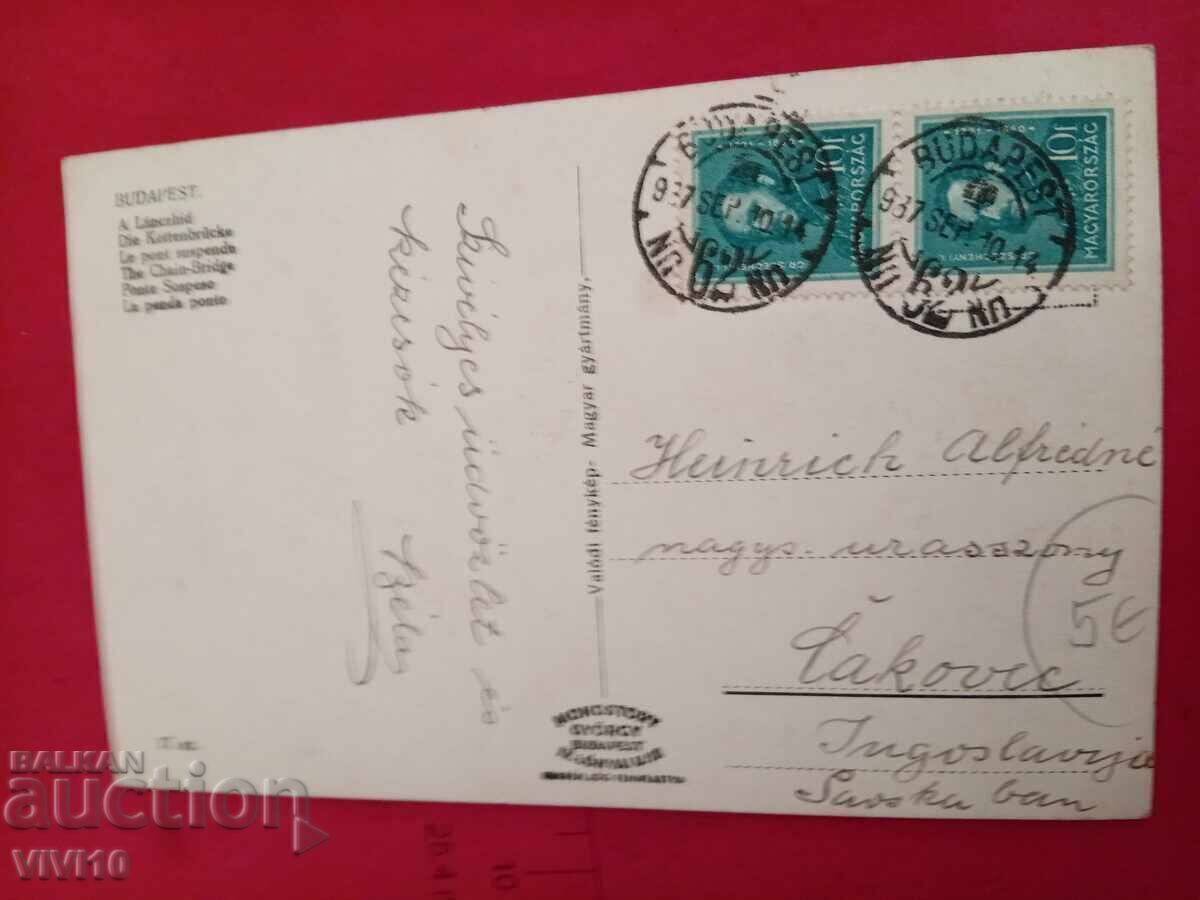 BUDAPEST.
A Lánchíd
Die Kettenbrücke
Le pont suspendu
The Chain-Bridge
Ponte Sospeso
La penda ponto
Szivélyes üdvözlet és
Béla
Valódi fénykép- Magyar gyártmány,
GYÖRGY
BUDAPEST
10f
MAGYARORSZÁG
10f
MAGYARORSZÁG
BUDAPEST
937 SEP. 10. 14
BUDAPEST
937 SEP. 10. 14
Heinrich Alfrédné
nagys. urasszony
Čakovec
Jugoslavija
Savska ban
5€
BALKAN
auction
VIVI10
10